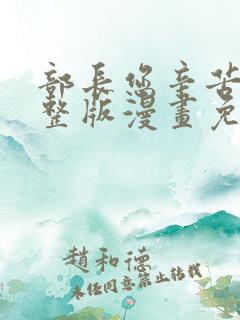 部長您辛苦
整版漫畫免
趙和德
未經同意禁止轉載